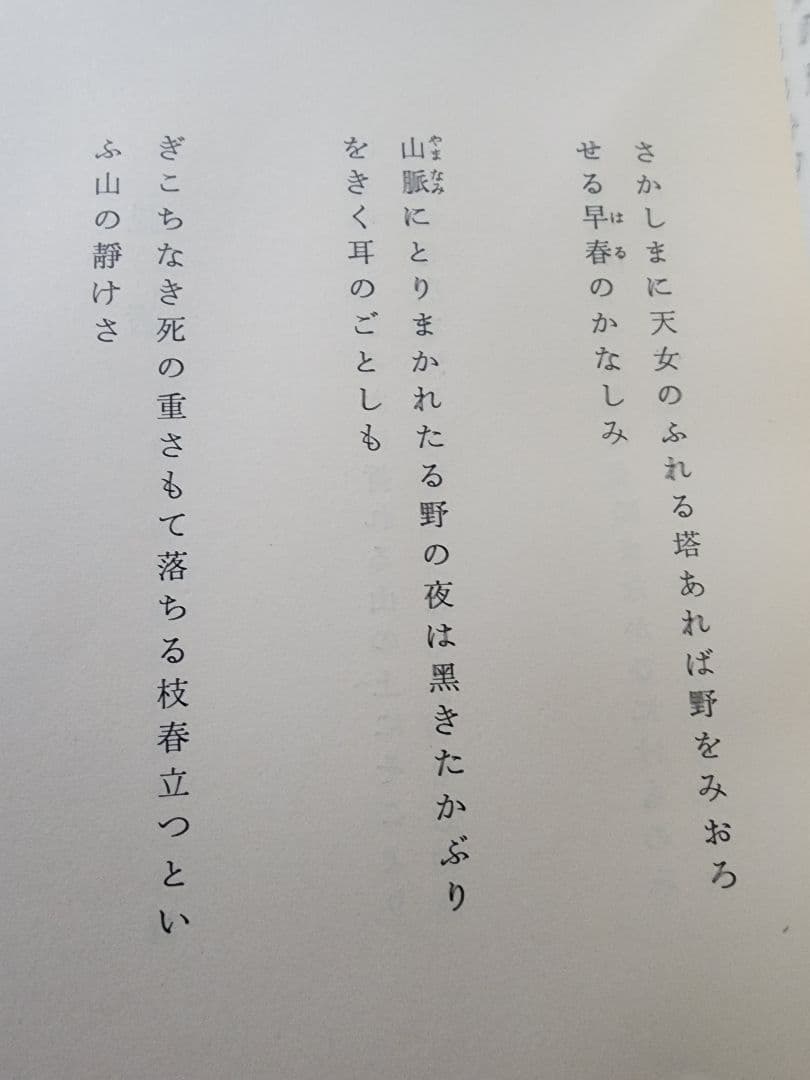 さかしまに天女のふれる塔あれば野をみおろ
せる早春のかなしみ
はる
山脈にとりまかれたる野の夜は黑きたかぶり
やまなみ
をきく耳のごとしも
ぎこちなき死の重さもて落ちる枝春立つとい
ふ山の靜けさ